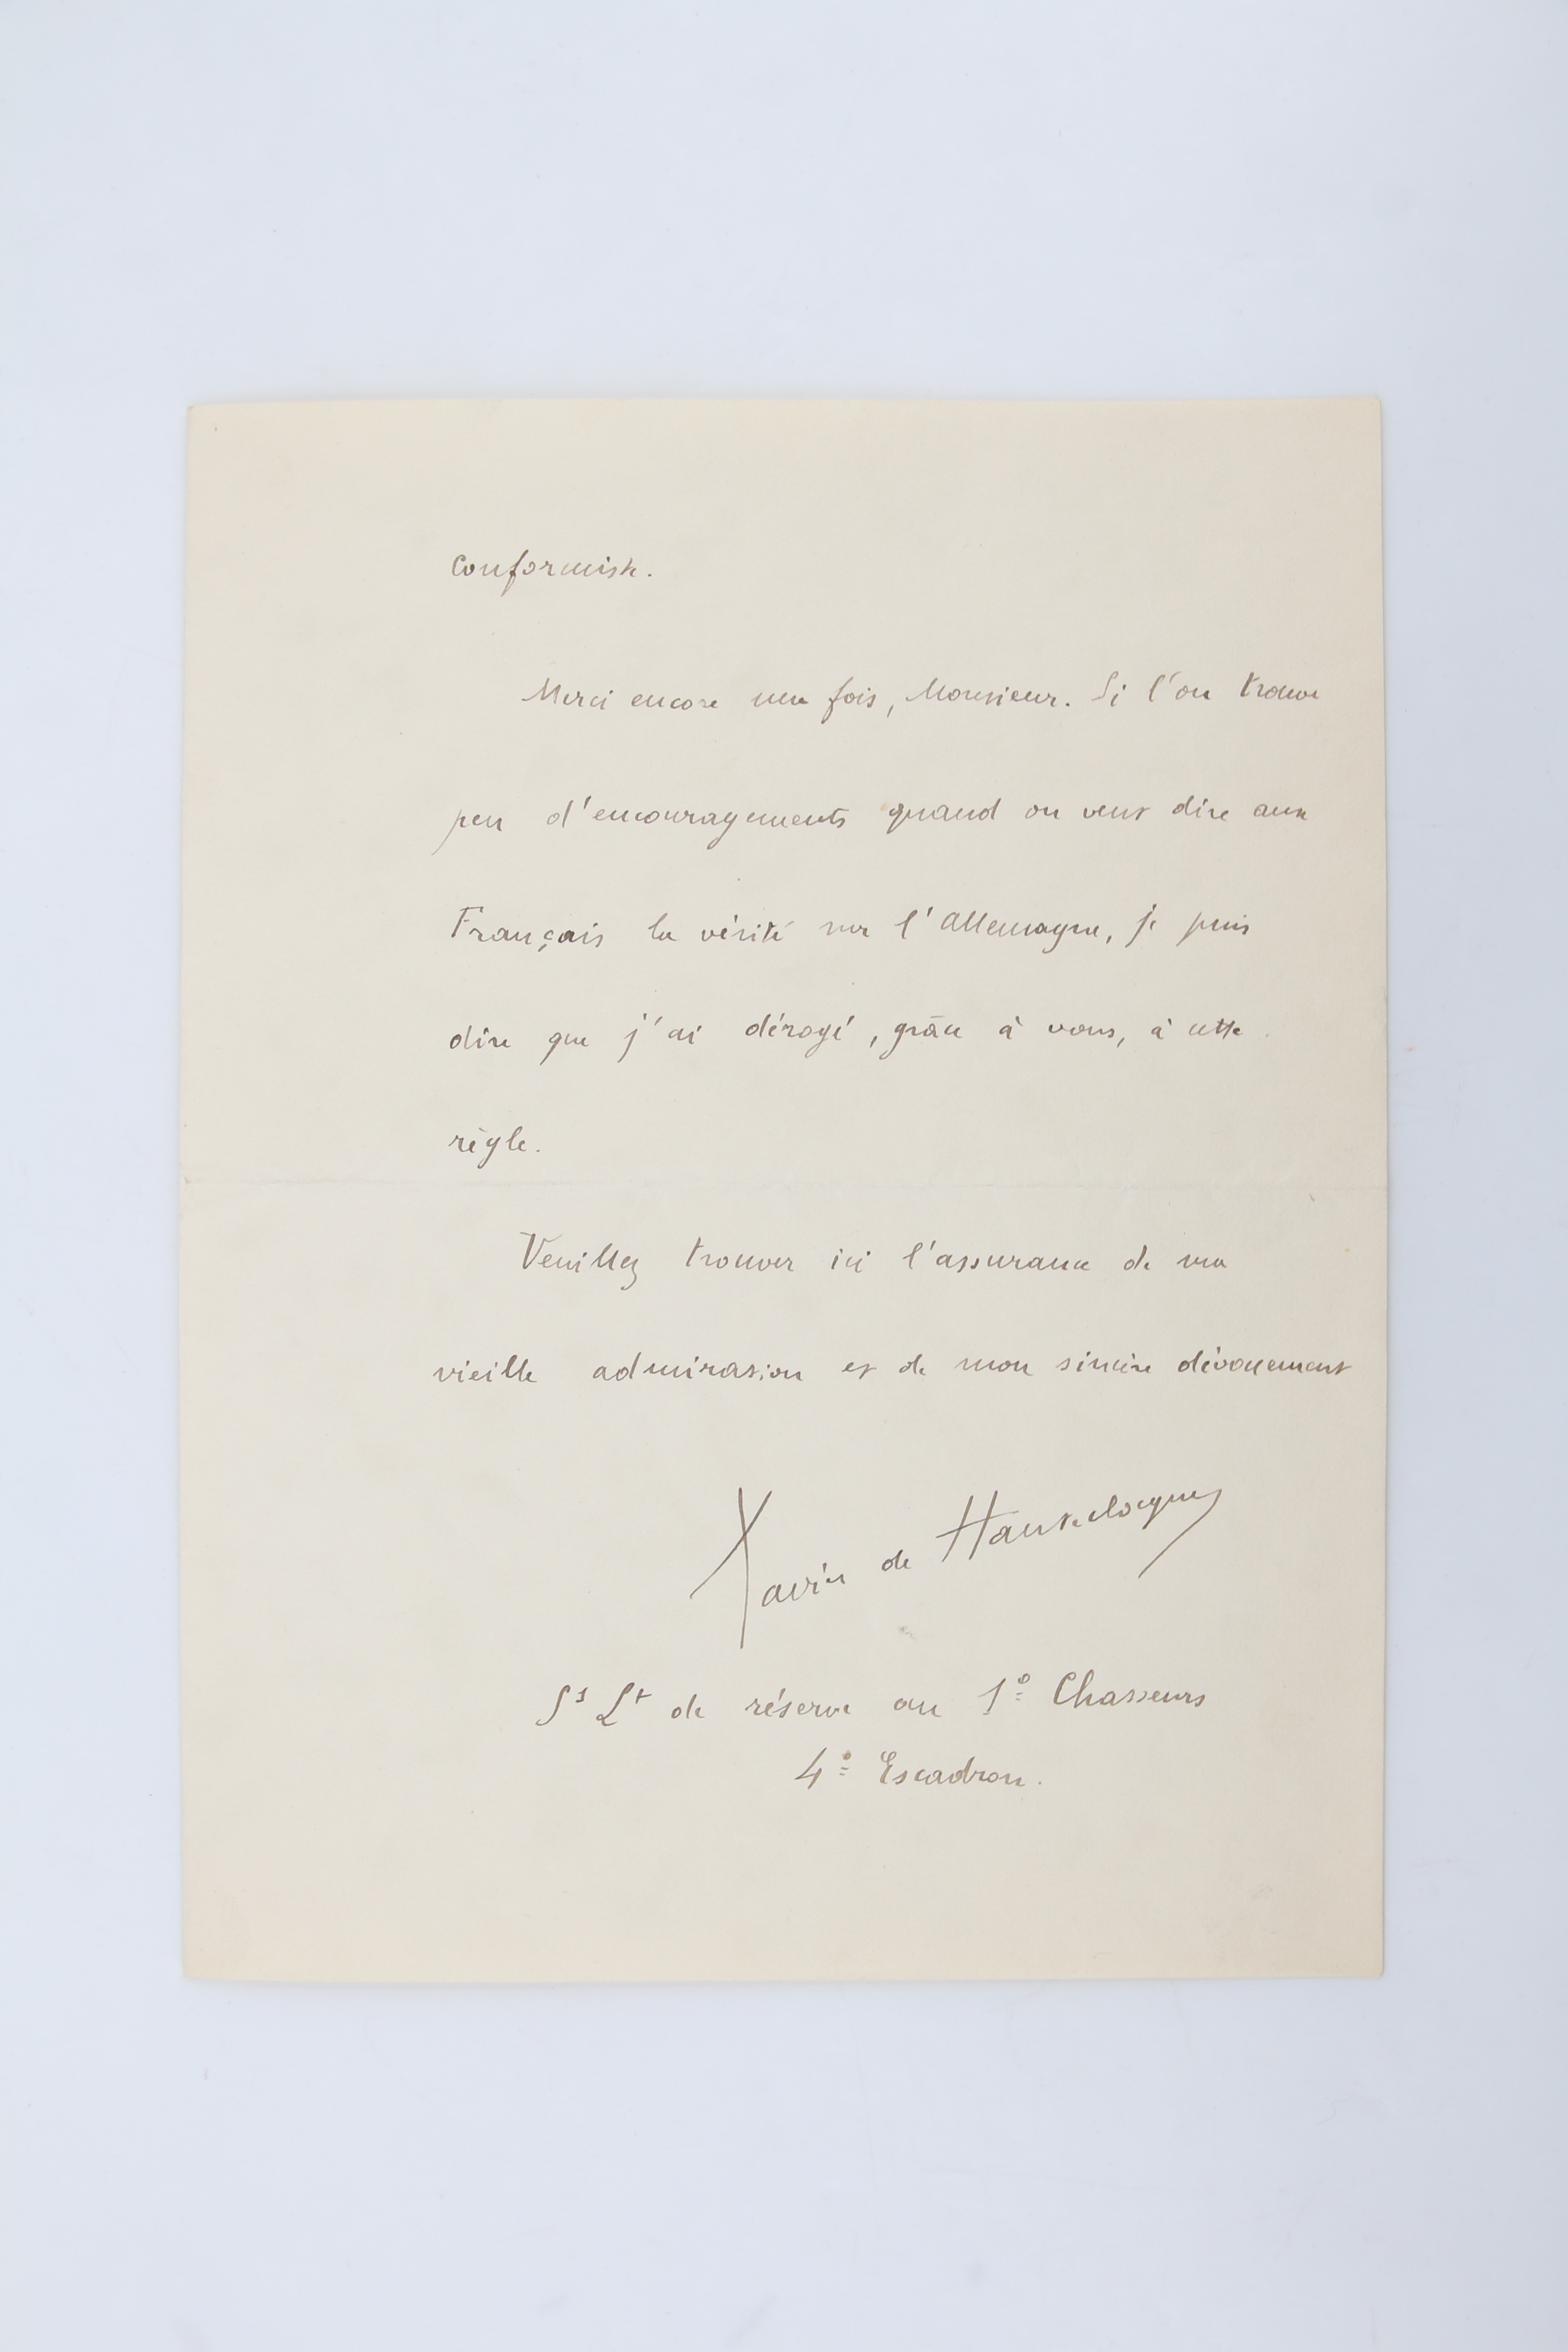 conformiste.
Merci encore une fois, Monsieur. Si l'on trouve
peu d'encouragements quand on veut dire aux
Français la vérité sur l'Allemagne, je puis
dire que j'ai dérogé, grâce à vous, à cette
règle.
Veuillez trouver ici l'assurance de ma
vieille admiration et de mon sincère dévouement
Xavier de Hauteclocque
Ss Lt de réserve au 1º Chasseurs
4º Escadron.